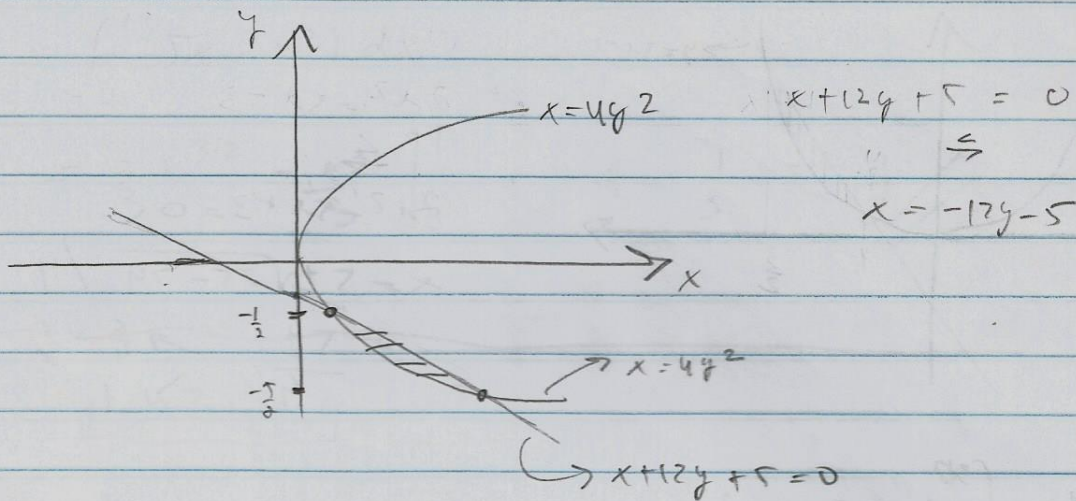 y
x = 4y²
x + 12y + 5 = 0
⇒
x = -12y - 5
x
-1/2
-5/2
x = 4y²
x + 12y + 5 = 0